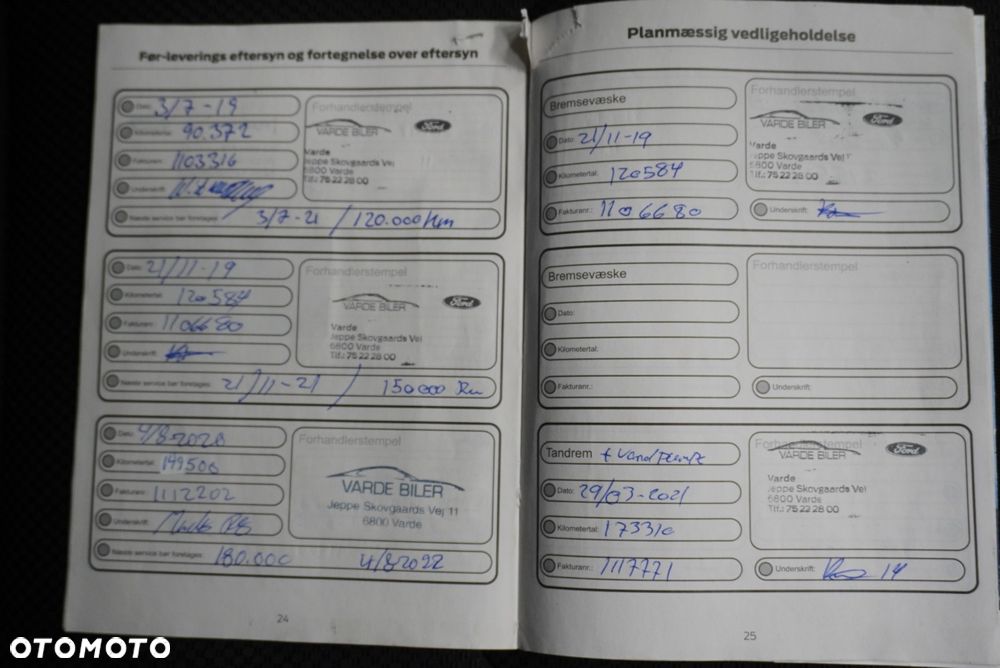 Før-leverings eftersyn og fortegnelse over eftersyn
Dato: 3/7-19
Kilometertal: 90.372
Fakturanr.: 1103316
Underskrift:
Næste service bør foretages: 3/7-21 / 120.000 Km
Forhandlerstempel
VARDE BILER Ford
Varde
Jeppe Skovgaards Vej
6800 Varde
Tlf.: 75 22 28 00
Dato: 21/11-19
Kilometertal: 120584
Fakturanr.: 1106680
Underskrift:
Næste service bør foretages: 21/11-21 / 150000 Km
Forhandlerstempel
VARDE BILER Ford
Varde
Jeppe Skovgaards Vej
6800 Varde
Tlf.: 75 22 28 00
Dato: 4/8 2020
Kilometertal: 149500
Fakturanr.: 1112202
Underskrift:
Næste service bør foretages: 180.000 4/8 2022
Forhandlerstempel
VARDE BILER
Jeppe Skovgaards Vej 11
6800 Varde
24
Planmæssig vedligeholdelse
Bremsevæske
Dato: 21/11-19
Kilometertal: 120584
Fakturanr.: 1106680
Forhandlerstempel
VARDE BILER Ford
Varde
Jeppe Skovgaards Vej
6800 Varde
Tlf.: 75 22 28 00
Underskrift:
Bremsevæske
Dato:
Kilometertal:
Fakturanr.:
Forhandlerstempel
Underskrift:
Tandrem +
Dato: 29/03-2021
Kilometertal: 173310
Fakturanr.: 1117771
Forhandlerstempel
VARDE BILER Ford
Varde
Jeppe Skovgaards Vej
6800 Varde
Tlf.: 75 22 28 00
Underskrift: 14
25
OTOMOTO